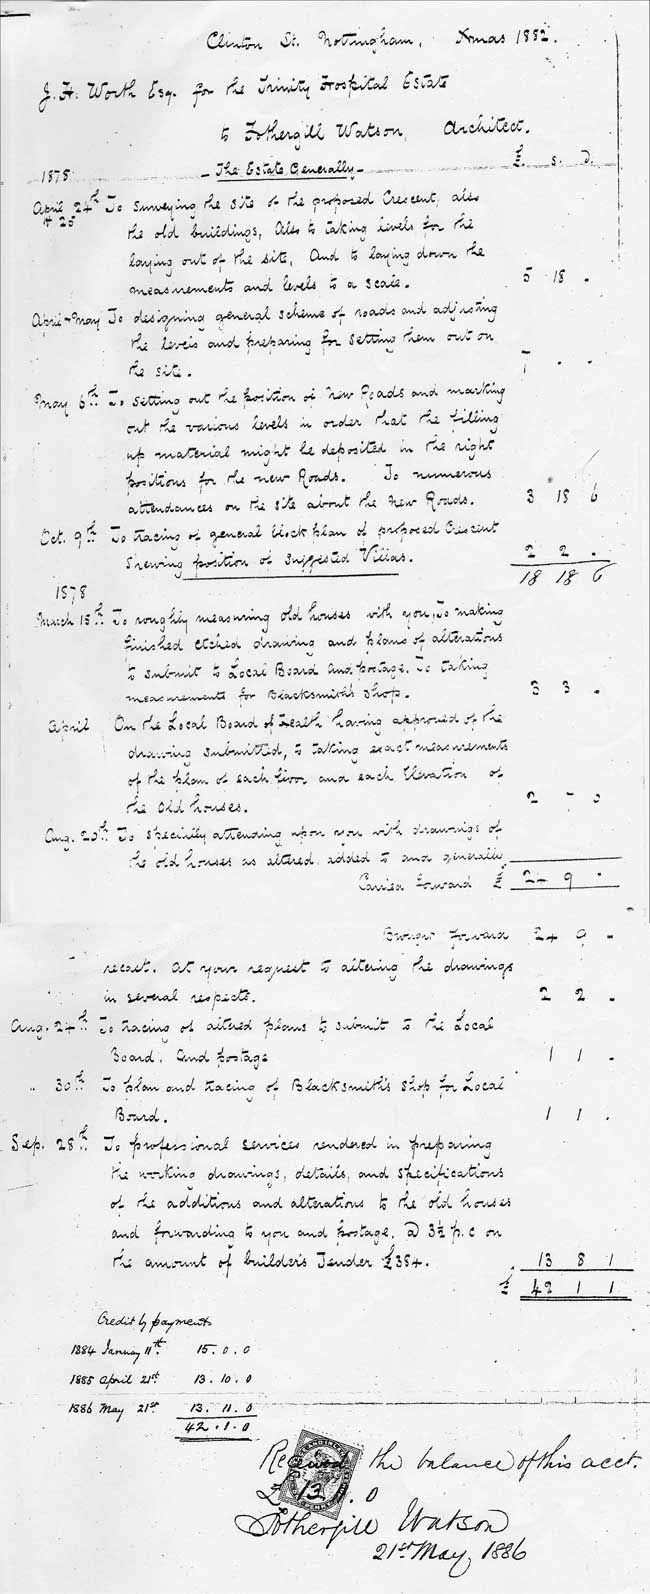 Clinton St. Nottingham, Xmas 1882.
J. H. Worth Esq. for the Trinity Hospital Estate
to Fothergill Watson, Architect.
1878 - The Estate Generally - £. s. d.
April 24th To surveying the site of the proposed Crescent, also
& 25 the old buildings, Also to taking levels for the
laying out of the site, And to laying down the
measurements and levels to a scale. 5 18 .
April & May To designing general scheme of roads and adjusting
the levels and preparing for setting them out on
the site. 7 . .
May 6th To setting out the position of New Roads and marking
out the various levels in order that the filling
up material might be deposited in the right
positions for the new Roads. To numerous
attendances on the site about the New Roads. 3 18 6
Oct. 9th To tracing of general block plan of proposed Crescent
shewing position of suggested Villas. 2 2 .
18 18 6
1878
March 15th To roughly measuring old houses with you, To making
finished etched drawing and plans of alterations
to submit to Local Board and postage. To taking
measurements for Blacksmith's Shop. 3 3 .
April On the Local Board of Health having approved of the
drawing submitted, to taking exact measurements
of the plan of each floor and each Elevation of
the old houses. 2
Aug. 20th To specially attending upon you with drawings of
the old houses as altered, added to and generally
Carried forward £ 24 9 .
Brought forward 24 9 -
recast. At your request to altering the drawings
in several respects. 2 2 .
Aug. 24th To tracing of altered plans to submit to the Local
Board. And postage 1 1 .
" 30th To plan and tracing of Blacksmith's Shop for Local
Board. 1 1 .
Sep. 28th To professional services rendered in preparing
the working drawings, details, and specifications
of the additions and alterations to the old houses
and forwarding to you and postage, @ 3½ p.c on
the amount of builder's Tender £384. 13 8 1
£ 42 1 1
Credit by payments
1884 January 11th. 15. 0. 0
1885 April 21st. 13. 10. 0
1886 May 21st. 13. 11. 0
42. 1. 0
Received the balance of this acct.
£ 13 11. 0
Fothergill Watson
21st May, 1886